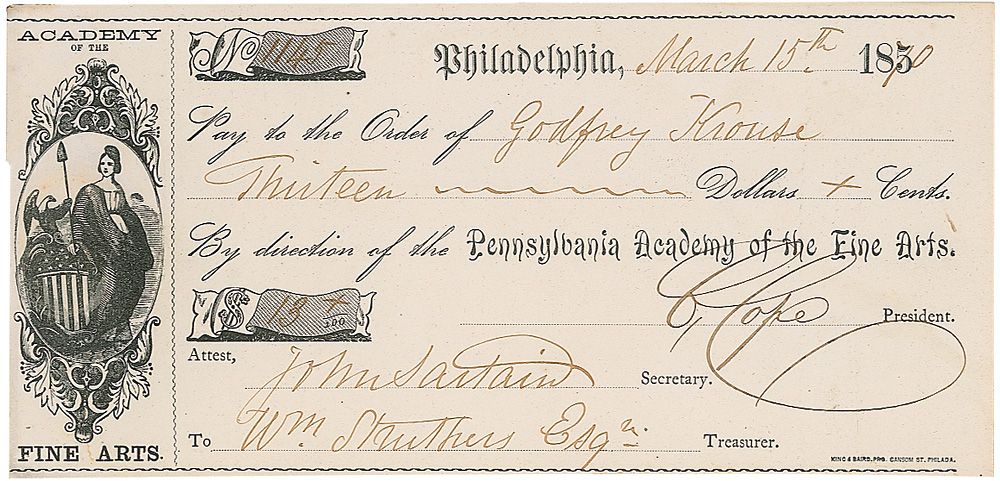 ACADEMY
OF THE
FINE ARTS.
No 1145
Philadelphia, March 15th 1870
Pay to the Order of Godfrey Krouse
Thirteen Dollars + Cents.
By direction of the Pennsylvania Academy of the Fine Arts.
$ 13 +/100
C, Cope President.
Attest,
John Sartain Secretary.
To Wm Struthers Esqr. Treasurer.
KING & BAIRD, PRS. SANSOM ST. PHILADA.